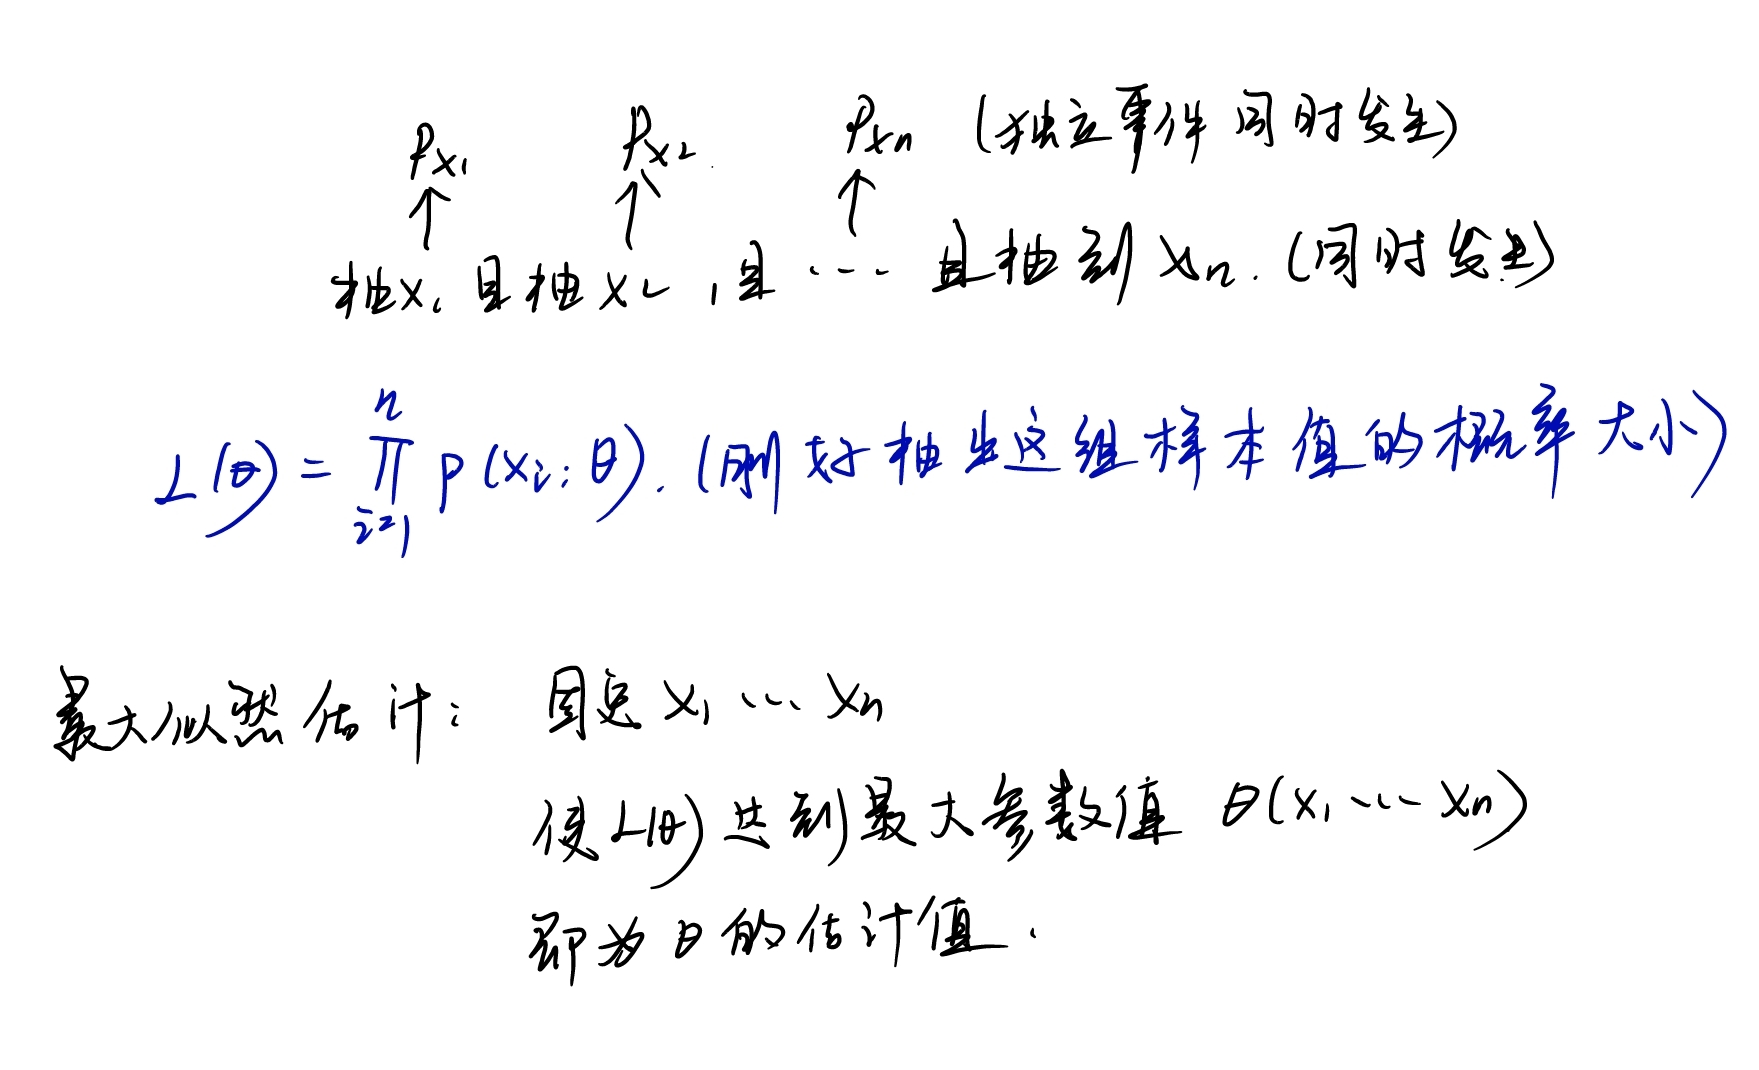 Px₁ Px₂ Pxn (独立事件同时发生)
↑ ↑ ↑
抽x₁ 且抽x₂, 且 ... 且抽到 xn. (同时发生)
L(θ) = ∏ᵢ₌₁ⁿ p(xᵢ; θ). (刚好抽出这组样本值的概率大小)
最大似然估计: 固定 x₁ ... xn
使L(θ)达到最大参数值 θ(x₁ ... xn)
即为θ的估计值.